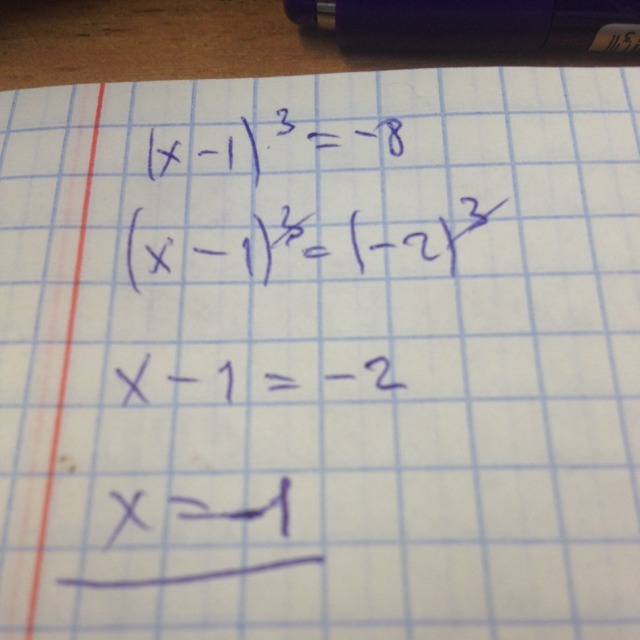 (x-1)³=-8
(x-1)³=(-2)³
x-1=-2
x=-1